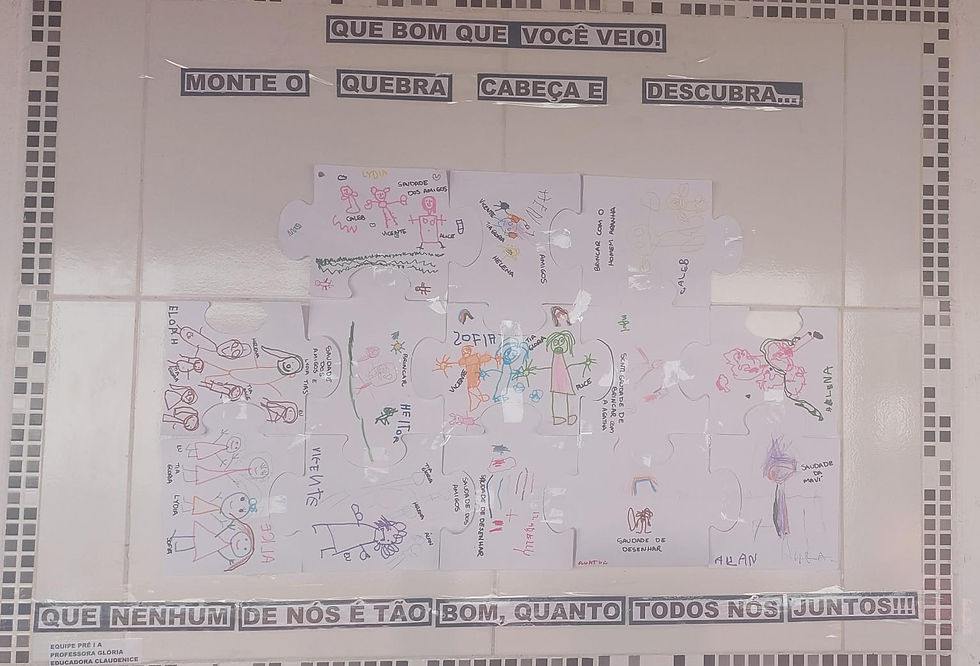 QUE BOM QUE VOCÊ VEIO!
MONTE O QUEBRA CABEÇA E DESCUBRA...
LYDIA
SAUDADE
DOS AMIGOS
CALEB
VICENTE
ALICE
VICENTE
TIA GLORIA
HELENA
AMIGOS
BRINCAR COM O
HOMEM ARANHA
CALEB
ELOAH
SAUDADE
DOS
AMIGOS E
DAS TIAS
EU
BRINCAR
HEITOR
SOFIA
VICENTE
TIA
GLORIA
ALICE
SENTI SAUDADE DE
BRINCAR COM
A AGATHA
HELENA
EU
TIA
GLORIA
LYDIA
SOFIA
ALICE
VICENTE
EU
TIA
GLORIA
ALAN
SAUDADE DOS
AMIGOS
SAUDADE DE DESENHAR
SAUDADE DE
DESENHAR
SAUDADE
DA
MAVI
ALAN
QUE NENHUM DE NÓS É TÃO BOM, QUANTO TODOS NÓS JUNTOS!!!
EQUIPE PRÉ I A
PROFESSORA GLÓRIA
EDUCADORA CLAUDENICE